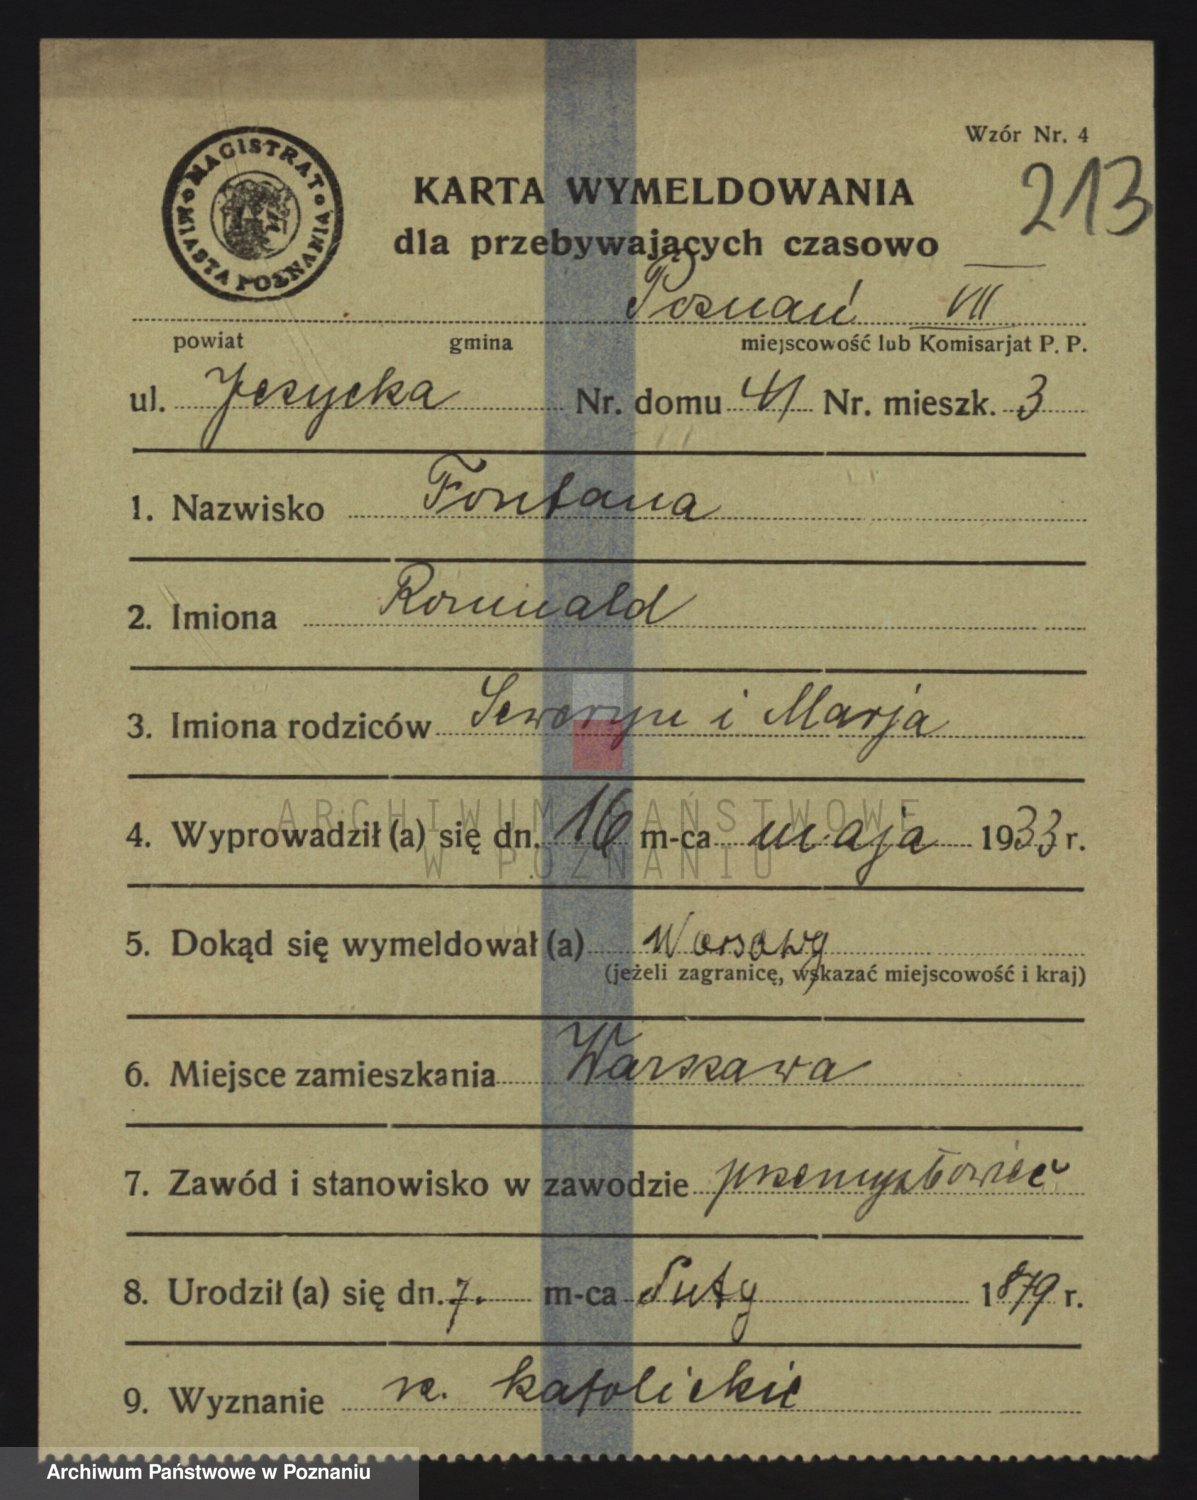 Wzór Nr. 4
MAGISTRAT MIASTA POZNANIA
213
KARTA WYMELDOWANIA
dla przebywających czasowo
Poznań VII
powiat gmina miejscowość lub Komisarjat P. P.
ul. Jeżycka Nr. domu 41 Nr. mieszk. 3
1. Nazwisko Fontana
2. Imiona Romuald
3. Imiona rodziców Seweryn i Marja
ARCHIWUM PAŃSTWOWE
4. Wyprowadził (a) się dn. 16 m-ca maja 1933 r.
W POZNANIU
5. Dokąd się wymeldował (a)
(jeżeli zagranicę, wskazać miejscowość i kraj)
6. Miejsce zamieszkania Warszawa
7. Zawód i stanowisko w zawodzie przemysłowiec
8. Urodził (a) się dn. 7. m-ca luty 1879 r.
9. Wyznanie rz. katolickie
Archiwum Państwowe w Poznaniu